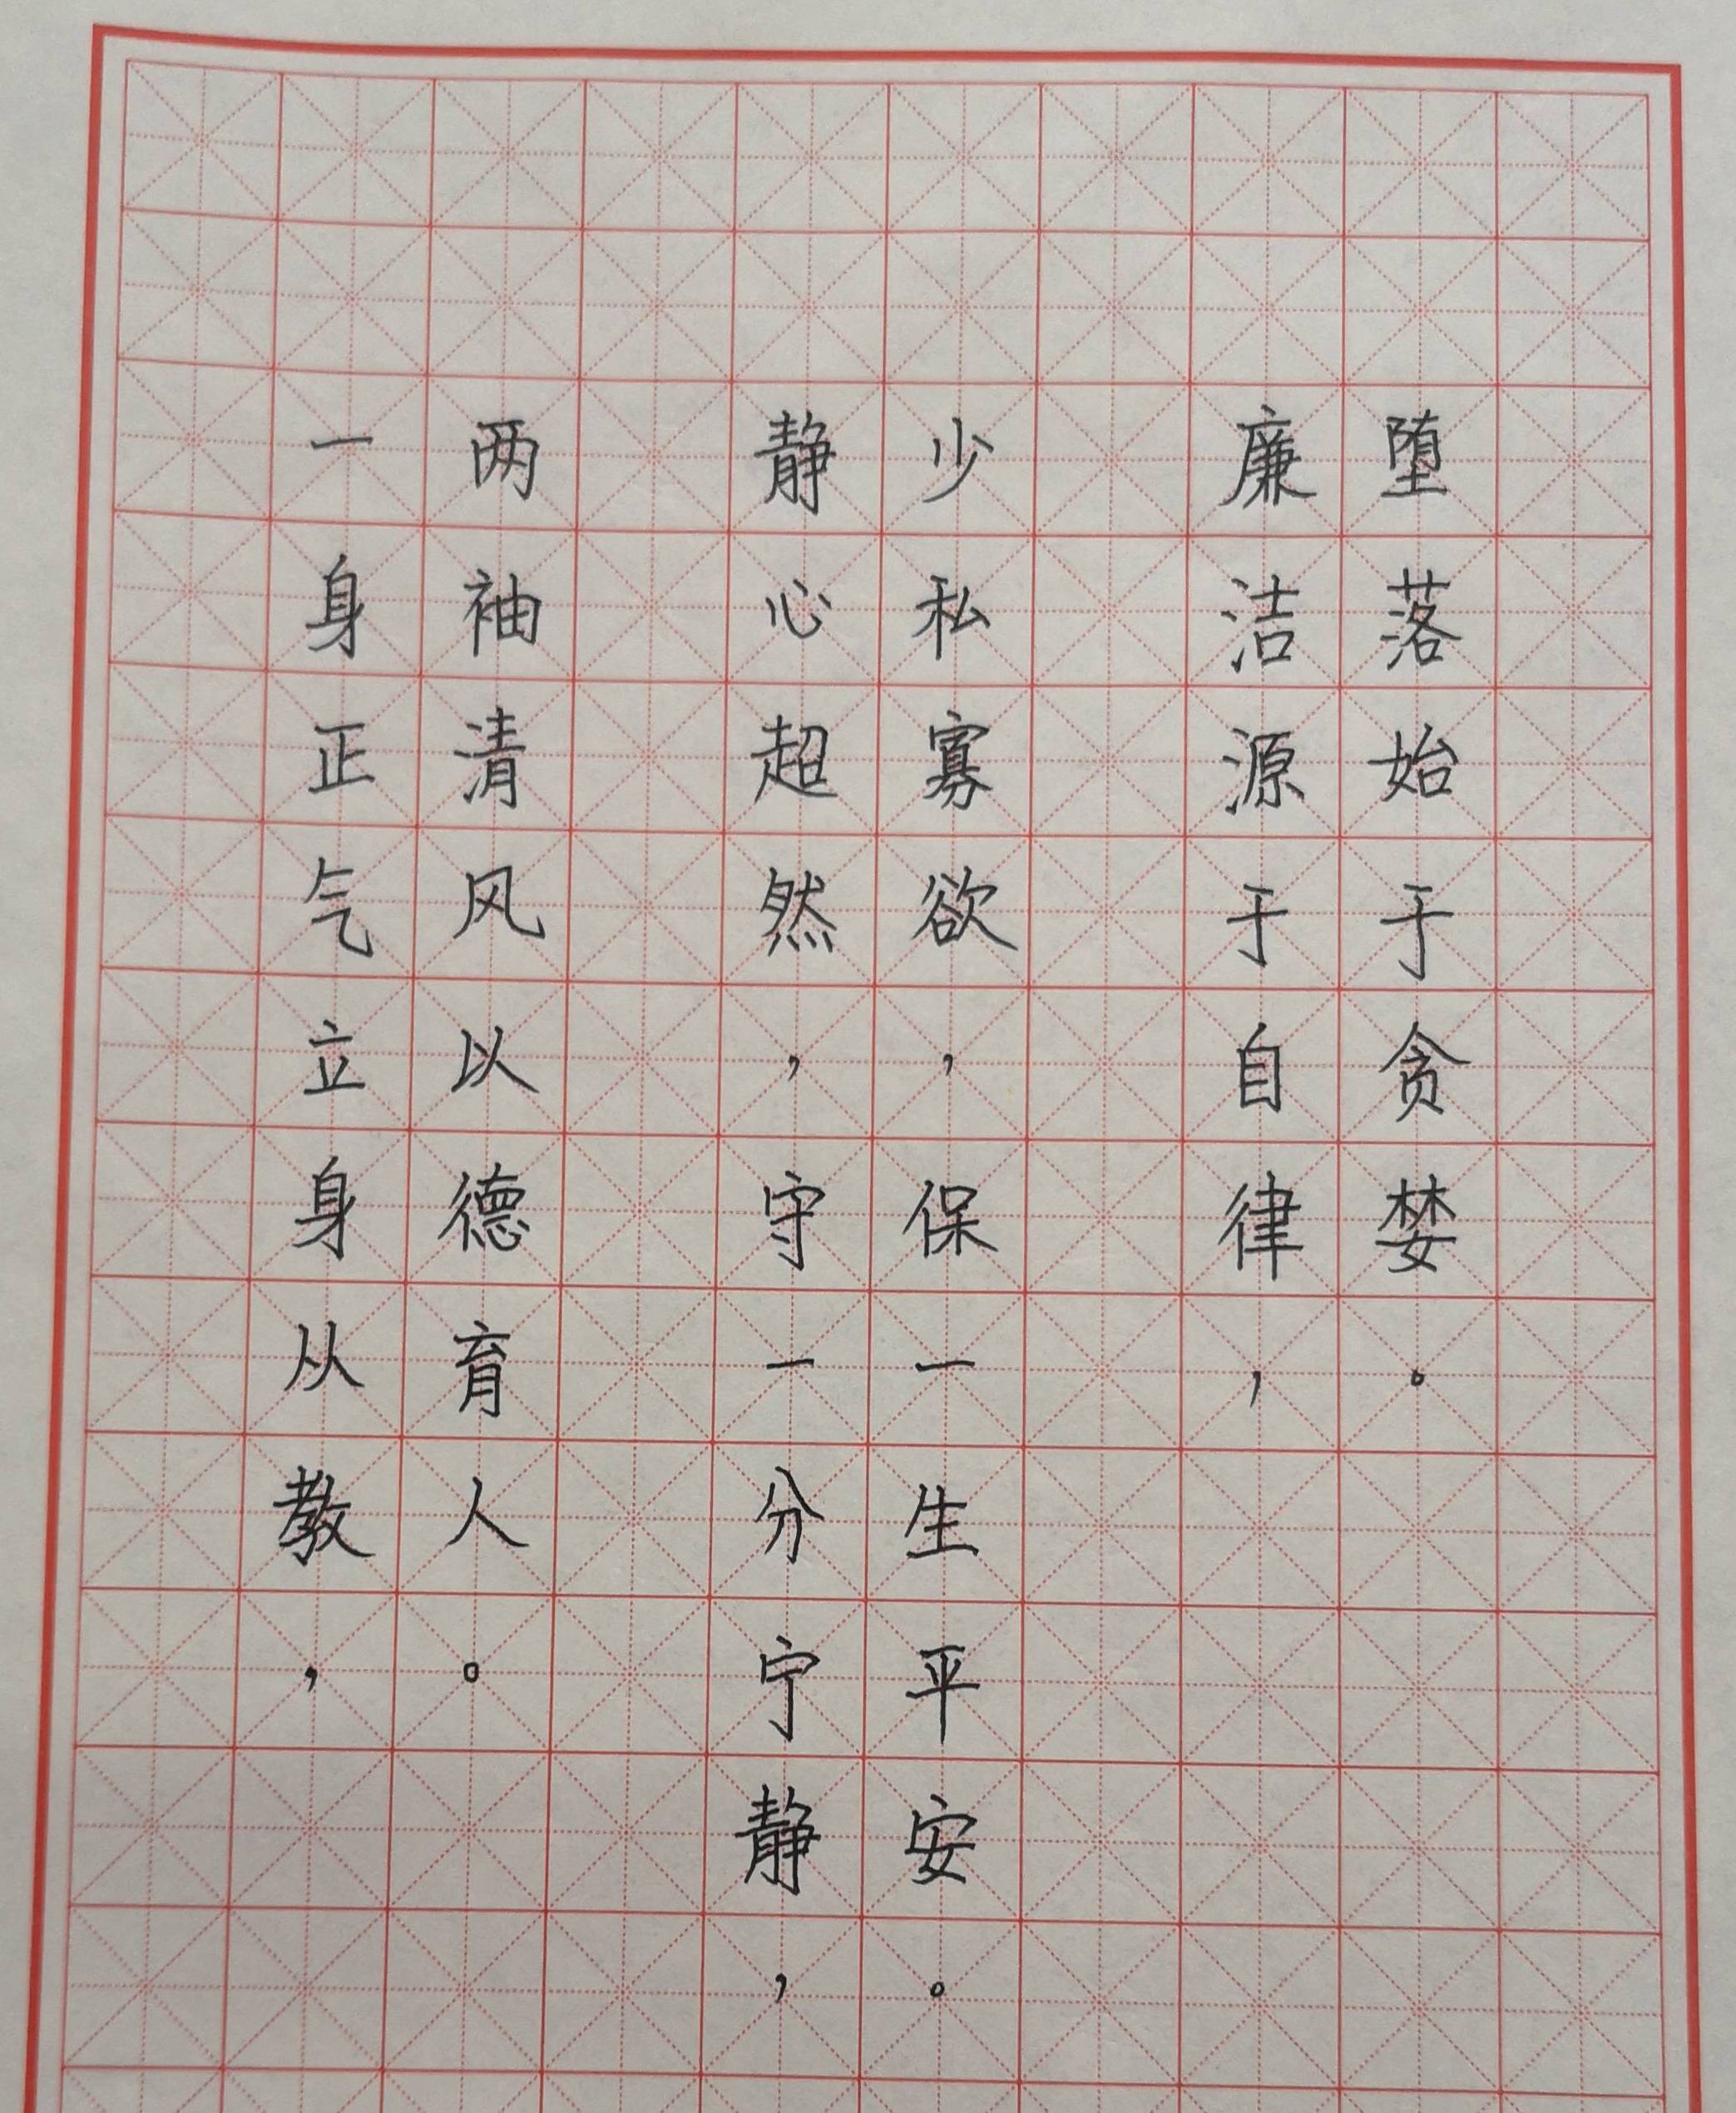 一身正气立身从教，
两袖清风以德育人。
静心超然，守一分宁静，
少私寡欲，保一生平安。
廉洁源于自律，
堕落始于贪婪。